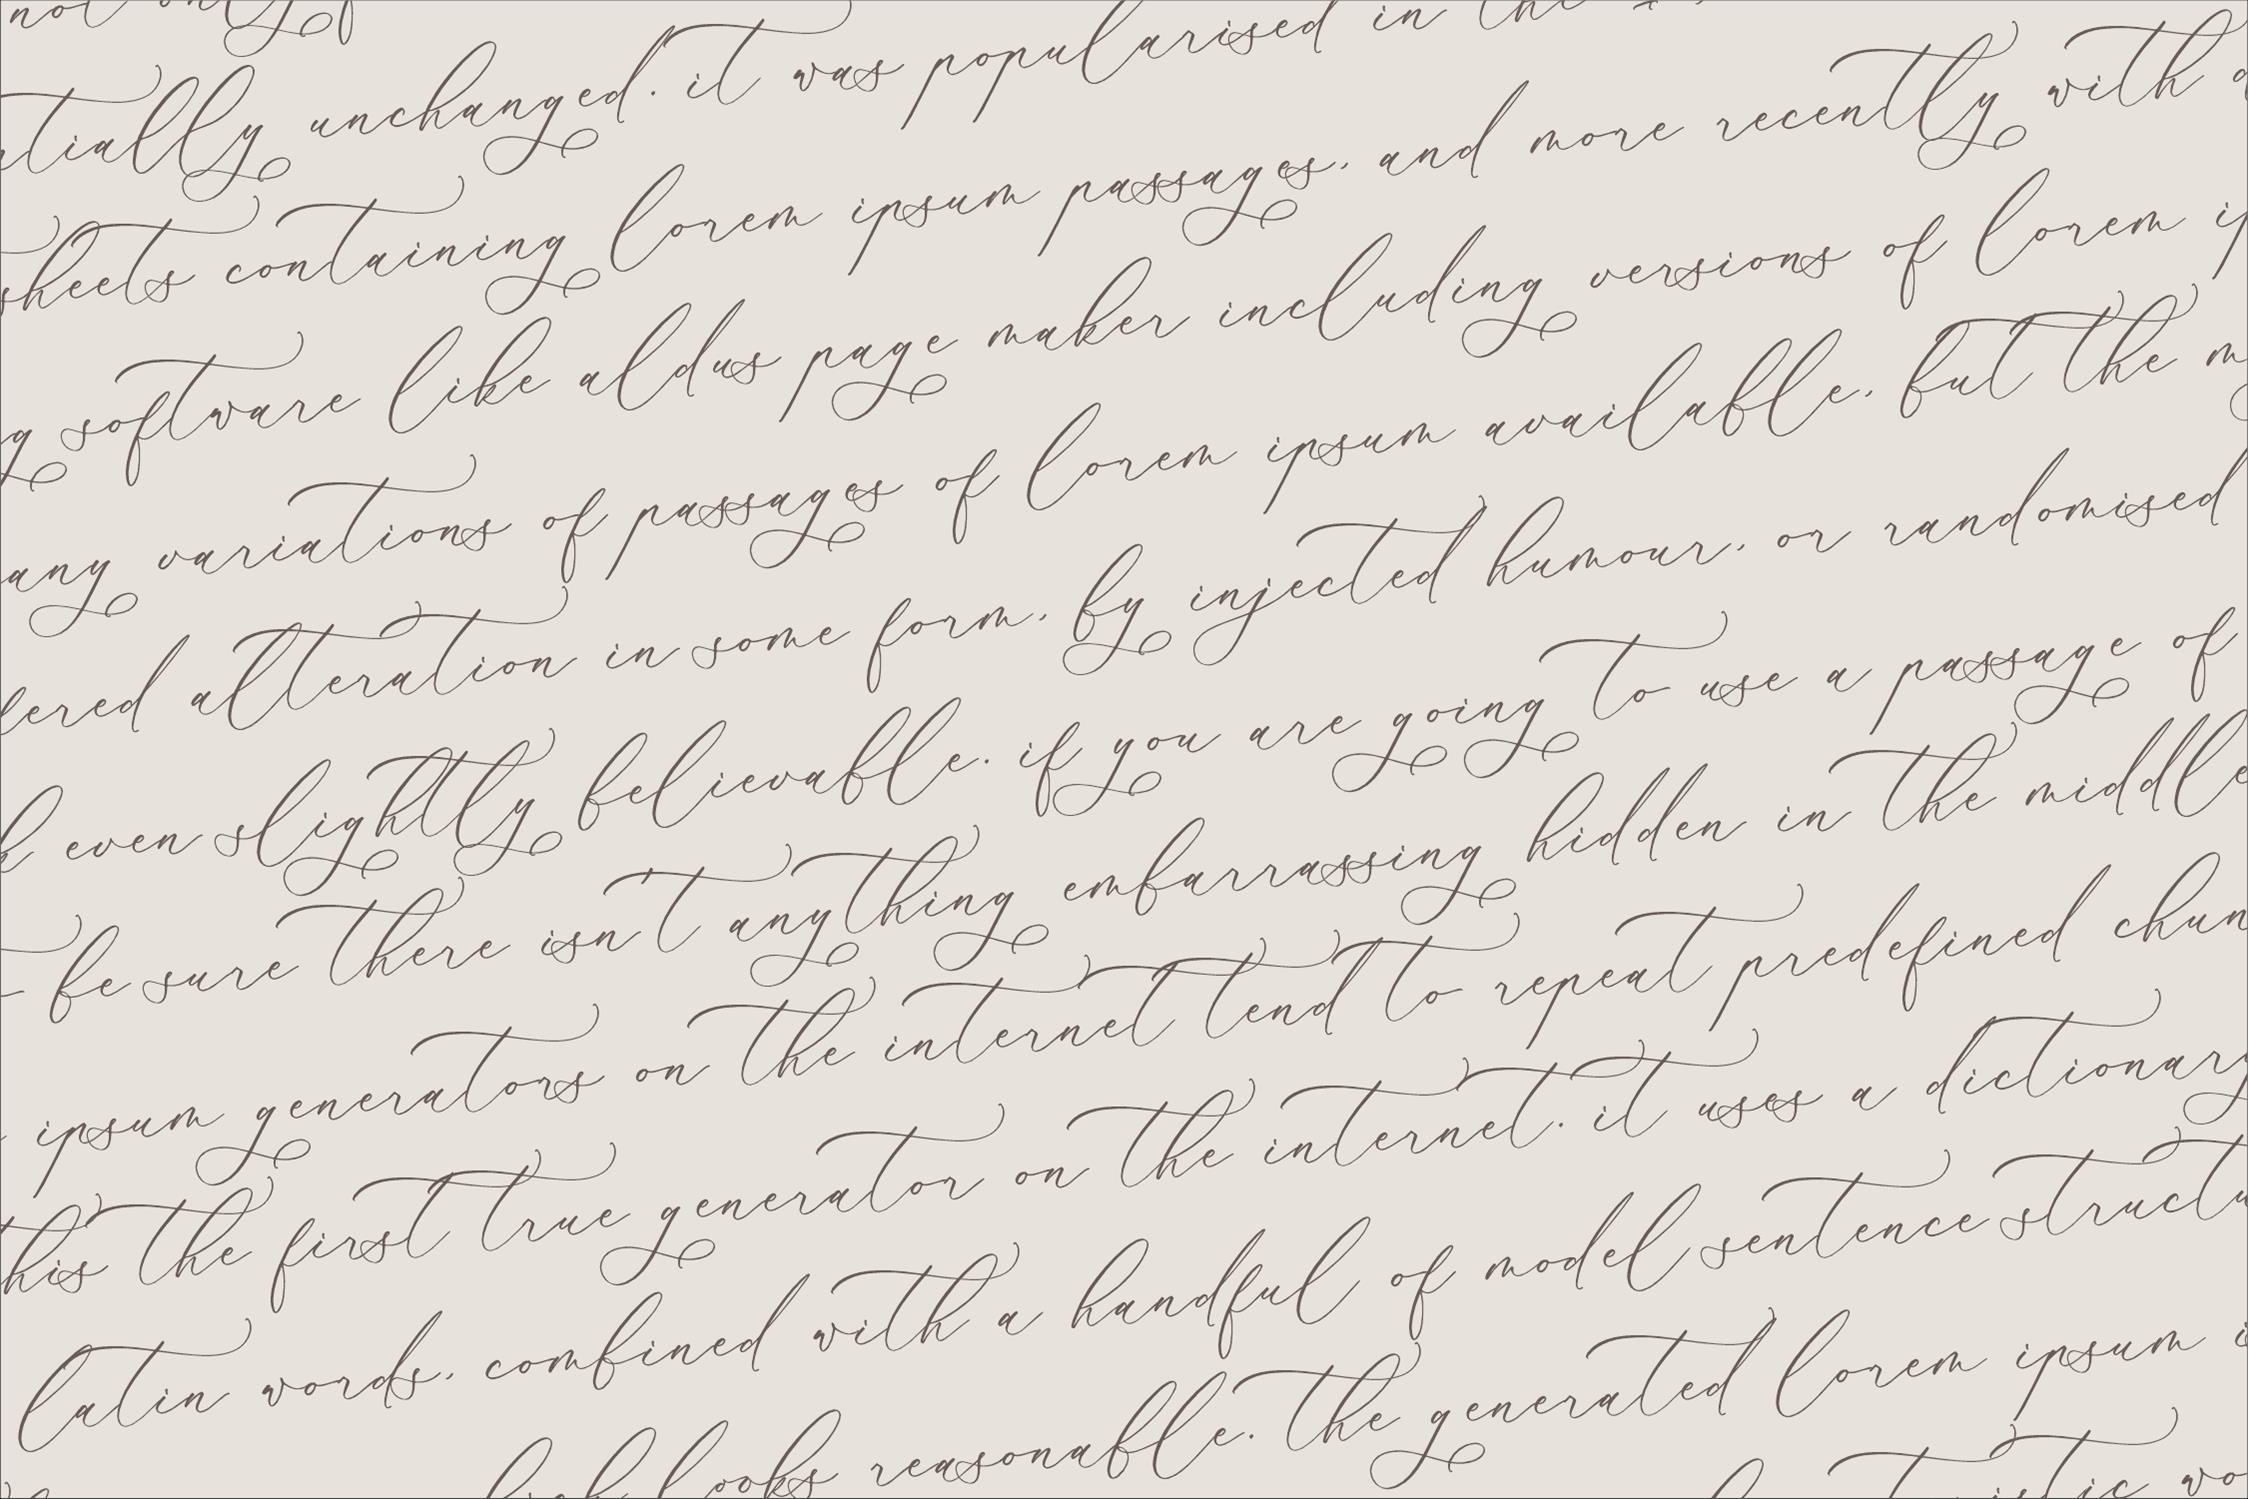 not only f
tially unchanged. it was popularised in the
sheets containing lorem ipsum passages, and more recently with
g software like aldus page maker including versions of lorem ip
any variations of passages of lorem ipsum available, but the m
fered alteration in some form, by injected humour, or randomised
k even slightly believable. if you are going to use a passage of
be sure there isn't anything embarrassing hidden in the middle
ipsum generators on the internet tend to repeat predefined chun
this the first true generator on the internet. it uses a dictionary
latin words, combined with a handful of model sentence structu
looks reasonable. the generated lorem ipsum i
wo